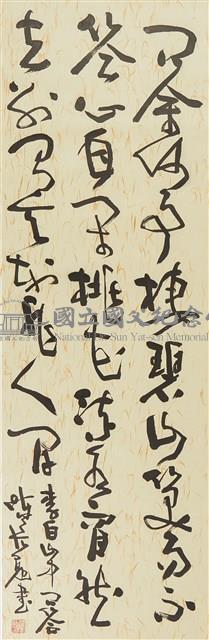 問余何事棲碧山笑而不
答心自閒桃花流水窅然
去別有天地非人間
李白山中問答
書
國立國父紀念館
National Dr. Sun Yat-sen Memorial